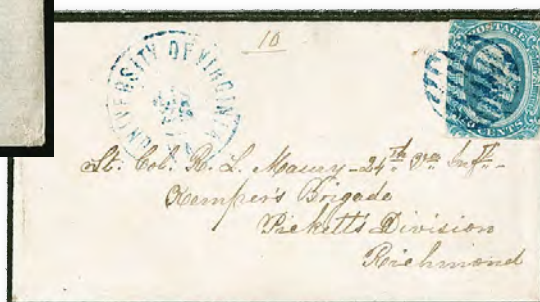 10
UNIVERSITY OF VIRGINIA
POSTAGE
CENTS
Lt. Col. R. L. Maury - 24th Va Inft -
Kemper's Brigade
Picketts Division
Richmond